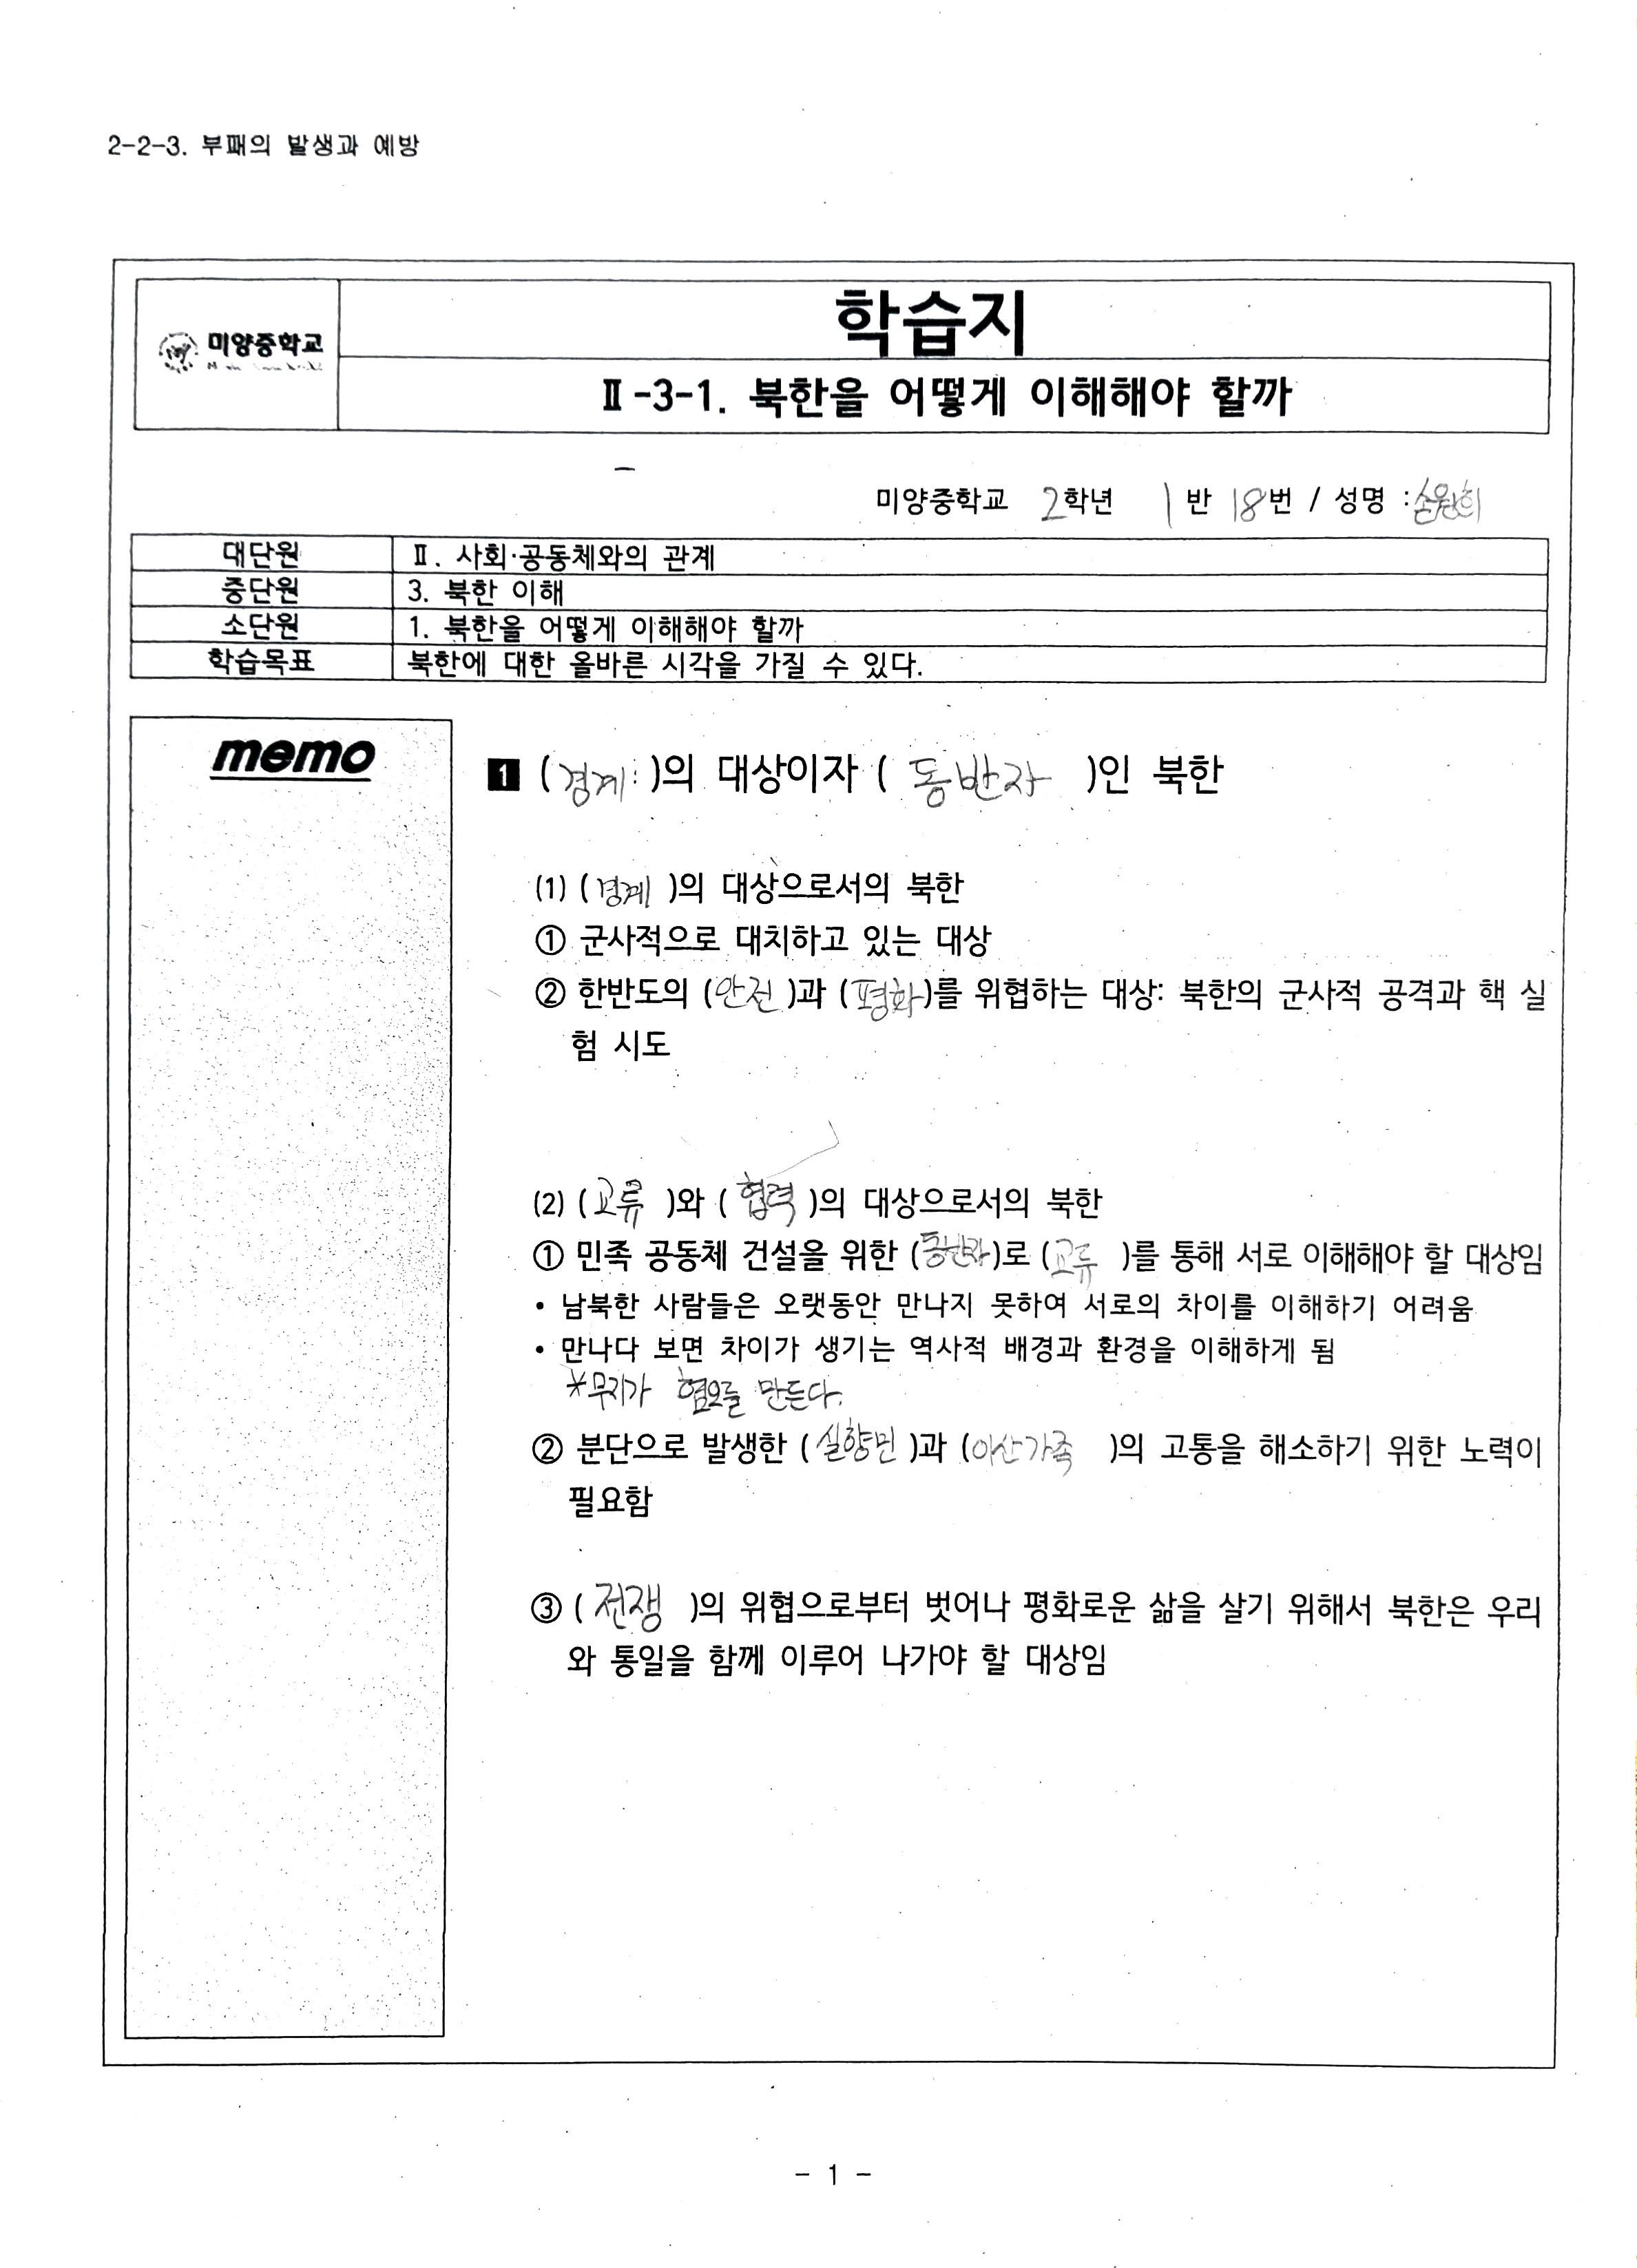 2-2-3. 부패의 발생과 예방
미양중학교
학습지
Ⅱ-3-1. 북한을 어떻게 이해해야 할까
미양중학교 2학년 1반 18번 / 성명 :
대단원 Ⅱ. 사회·공동체와의 관계
중단원 3. 북한 이해
소단원 1. 북한을 어떻게 이해해야 할까
학습목표 북한에 대한 올바른 시각을 가질 수 있다.
memo
1 (경계)의 대상이자 ( 동반자 )인 북한
(1) (경계)의 대상으로서의 북한
① 군사적으로 대치하고 있는 대상
② 한반도의 (안전)과 (평화)를 위협하는 대상: 북한의 군사적 공격과 핵 실
험 시도
(2) (교류 )와 ( 협력 )의 대상으로서의 북한
① 민족 공동체 건설을 위한 (동반자)로 (교류 )를 통해 서로 이해해야 할 대상임
• 남북한 사람들은 오랫동안 만나지 못하여 서로의 차이를 이해하기 어려움
• 만나다 보면 차이가 생기는 역사적 배경과 환경을 이해하게 됨
*무지가 혐오를 만든다.
② 분단으로 발생한 ( 실향민 )과 (이산가족 )의 고통을 해소하기 위한 노력이
필요함
③ ( 전쟁 )의 위협으로부터 벗어나 평화로운 삶을 살기 위해서 북한은 우리
와 통일을 함께 이루어 나가야 할 대상임
- 1 -